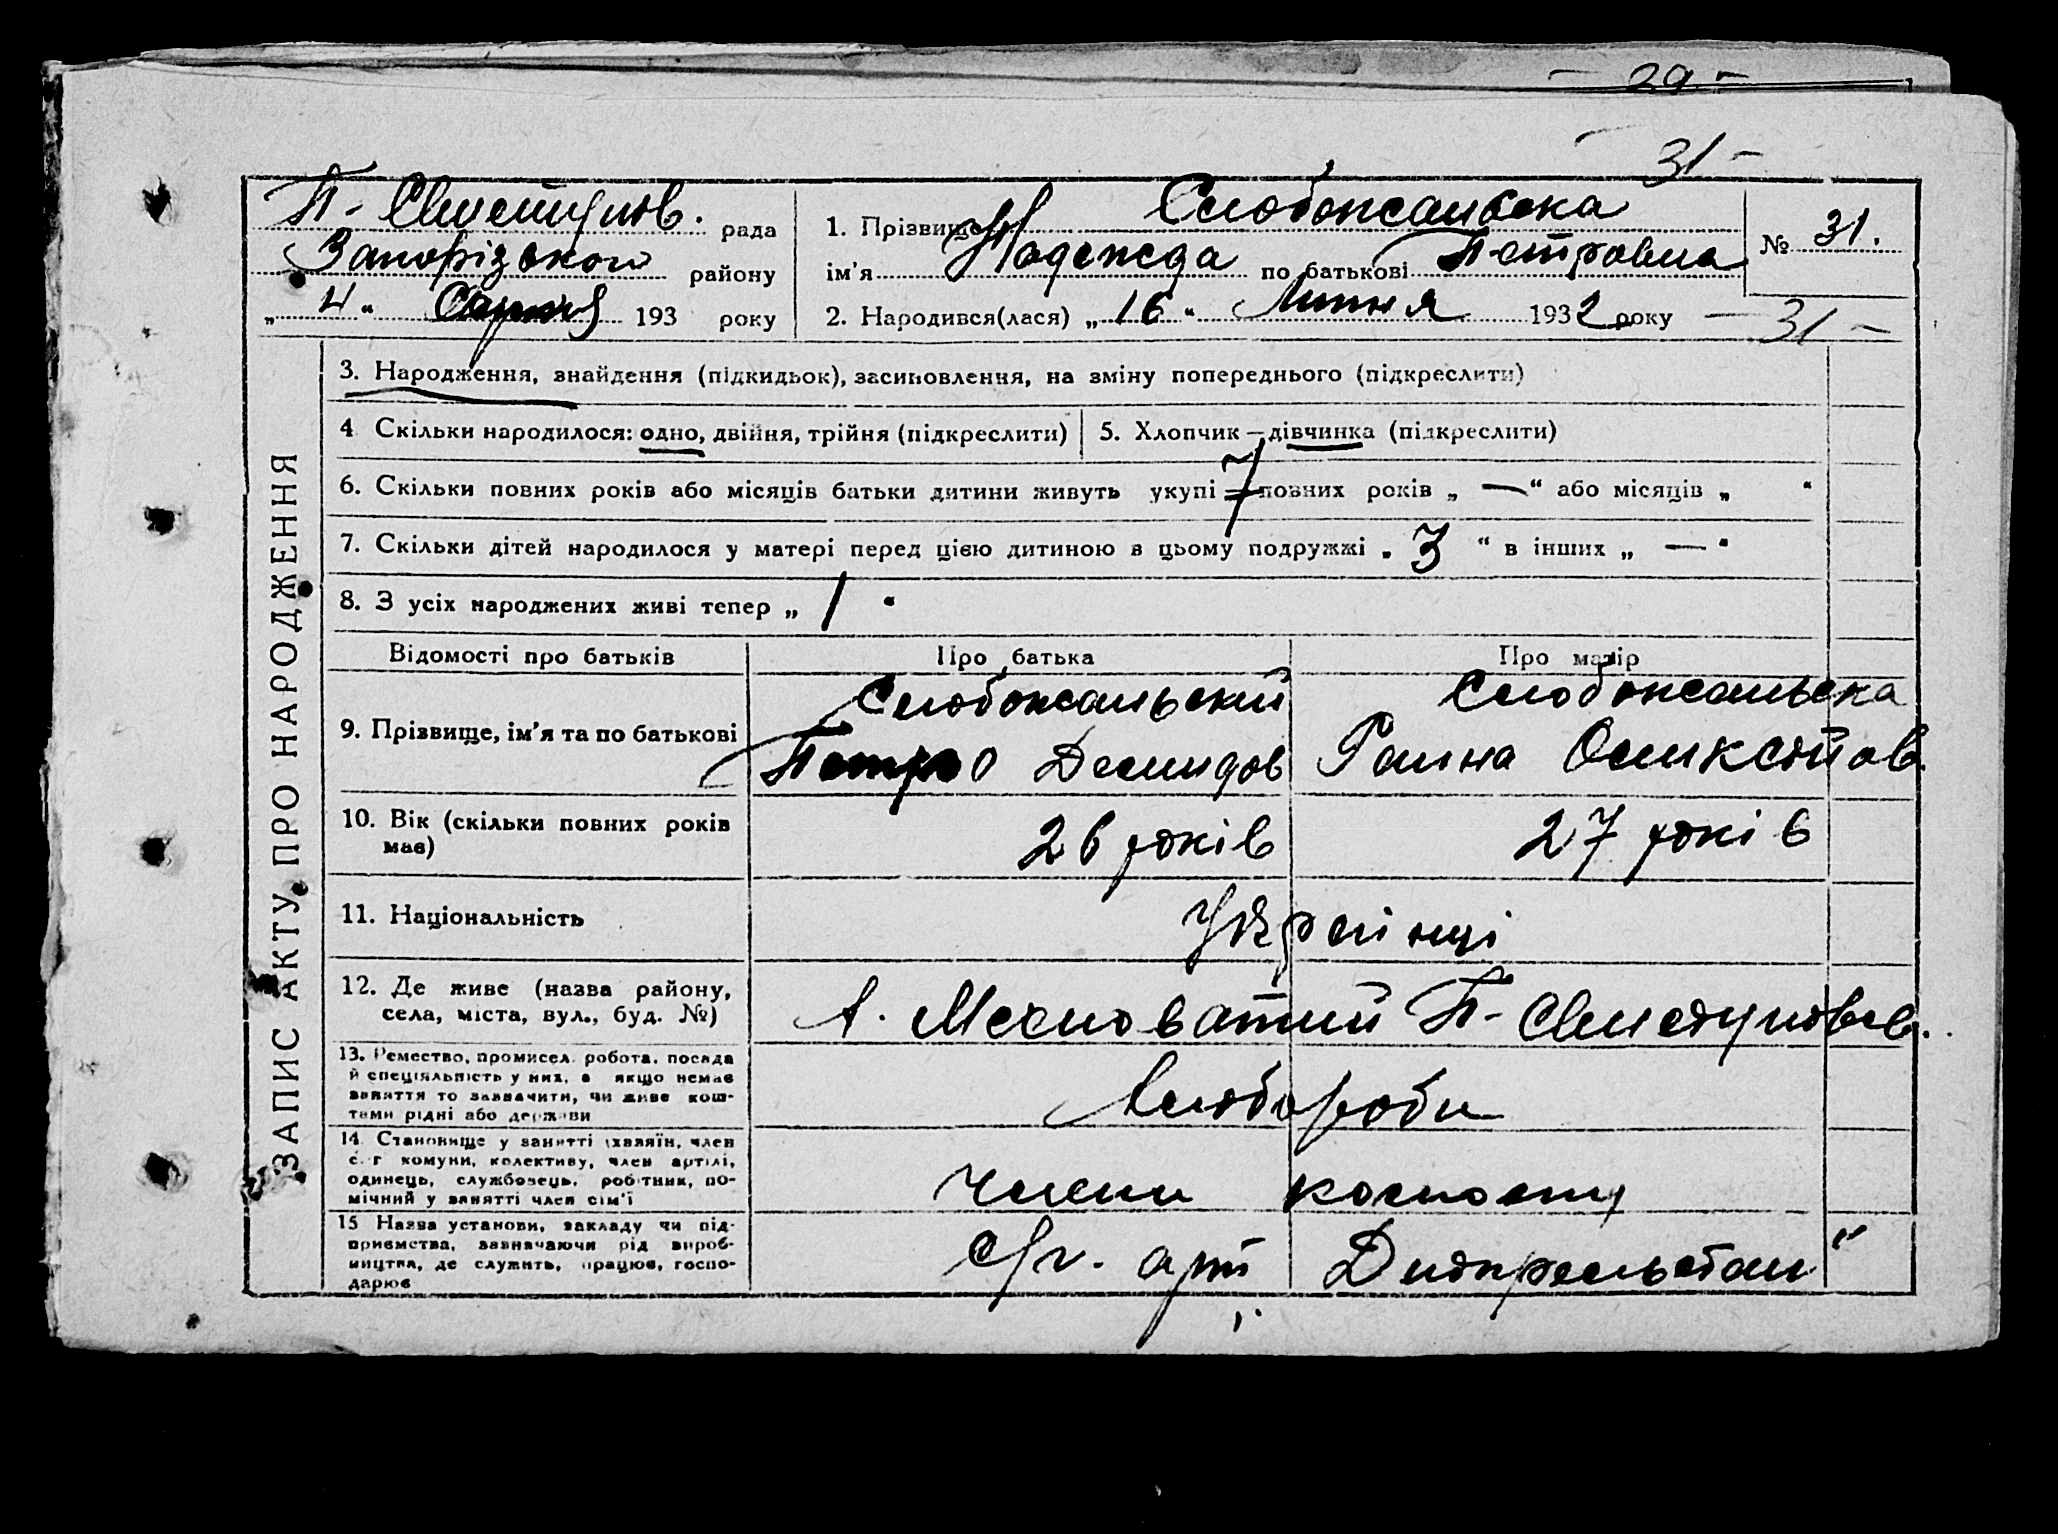 — 29 —
— 31 —
П-Свистунов. рада
Запорізького району
„ 4 “ Серпня 193 року
1. Прізвище Слобожанська
ім'я Надежда по батькові Петровна
№ 31.
2. Народився(лася) „ 16 “ Липня 1932 року
— 31 —
ЗАПИС АКТУ ПРО НАРОДЖЕННЯ
3. Народження, знайдення (підкидьок), засиновлення, на зміну попереднього (підкреслити)
4 Скільки народилося: одно, двійня, трійня (підкреслити)
5. Хлопчик — дівчинка (підкреслити)
6. Скільки повних років або місяців батьки дитини живуть укупі 7 повних років „ — “ або місяців „ “
7. Скільки дітей народилося у матері перед цією дитиною в цьому подружжі „ 3 “ в інших „ — “
8. З усіх народжених живі тепер „ 1 “
Відомості про батьків
Про батька
Про матір
9. Прізвище, ім'я та по батькові
Слобожанський
Петро Демидов
Слобожанська
10. Вік (скільки повних років має)
26 років
27 років
11. Національність
Українці
12. Де живе (назва району,
села, міста, вул., буд. №)
П-Свистуновсв.
13. Ремество, промисел, робота, посада
й спеціяльність у них, а якщо немає
заняття то зазначити, чи живе кош-
тами рідні або держави
Хлібороби
14. Становище у занятті (хазяїн, член
с.-г комуни, колективу, член артілі,
одинець, службовець, робітник, по-
мічний у занятті член сім'ї
члени колгоспу
15 Назва установи, закладу чи під-
приємства, зазначаючи рід вироб-
ництва, де служить, працює, госпо-
дарює
С/г. арт „Дніпрельстан“